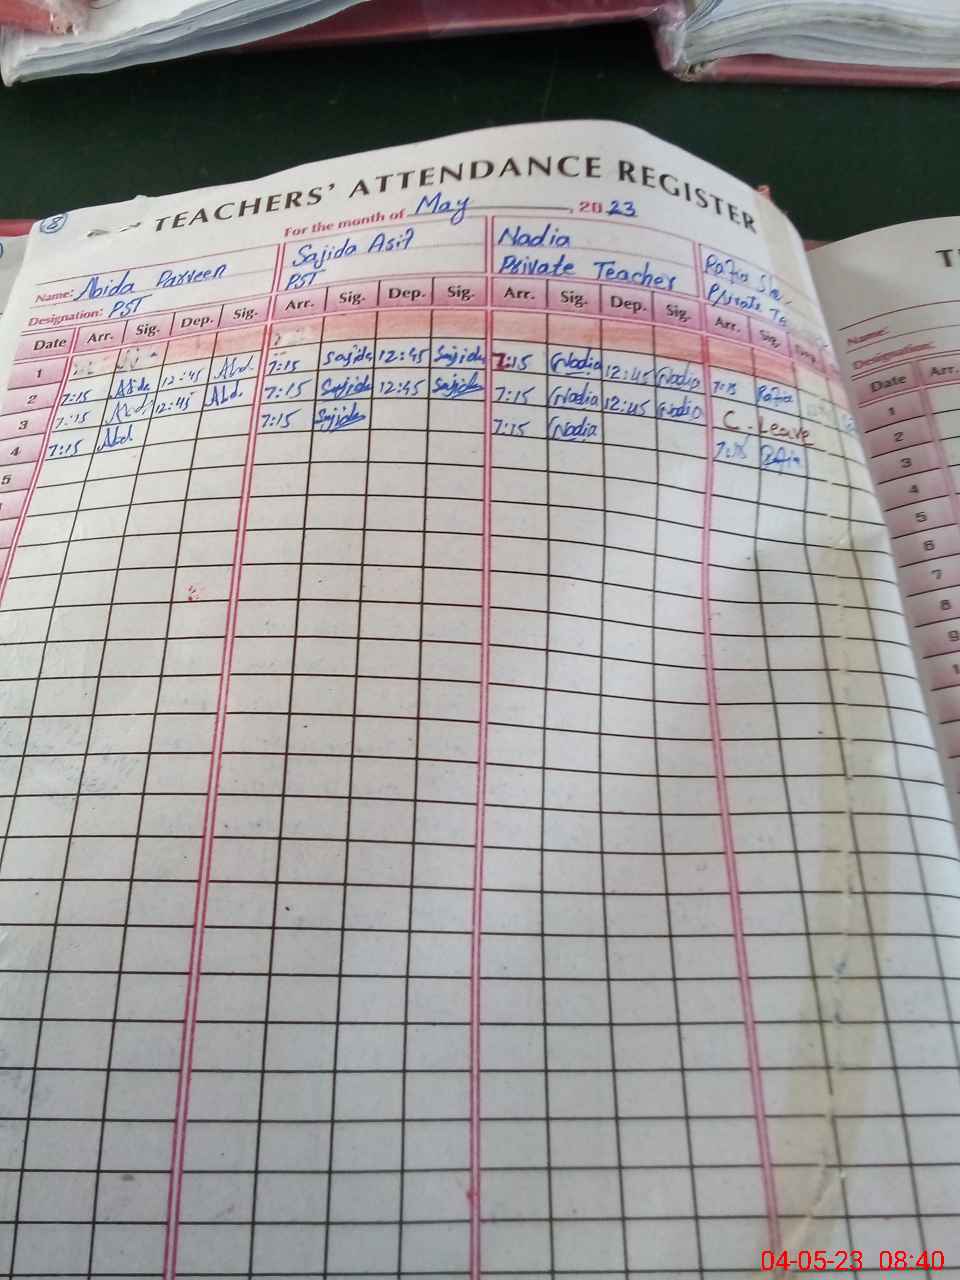 8
TEACHERS' ATTENDANCE REGISTER
For the month of May, 2023
Name: Abida Parveen Sajida Asif Nadia
Designation: PST PST Private Teacher Private
Date Arr. Sig. Dep. Sig. Arr. Sig. Dep. Sig. Arr. Sig. Dep. Sig. Arr. Sig.
1
2 7:15 Abida 12:45 Abd. 7:15 Sajida 12:45 Sajida 7:15 Nadia 12:45 Nadia 7:15
3 7:15 Abd. 12:45 Abd. 7:15 Sajida 12:45 Sajida 7:15 Nadia 12:45 Nadia C. Leave
4 7:15 Abd. 7:15 Sajida 7:15 Nadia 7:15
5
T
Name:
Designation:
Date Arr.
1
2
3
4
5
6
7
8
9
04-05-23 08:40